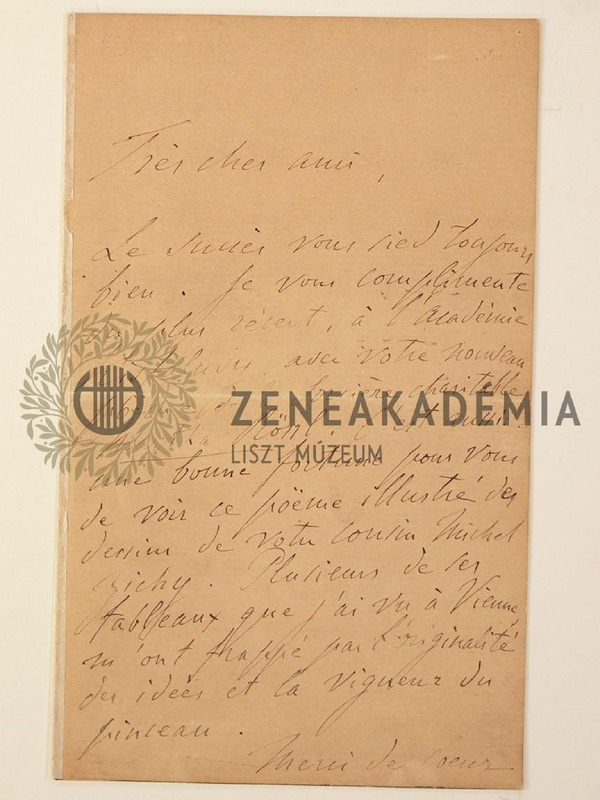 Très cher ami,
Le succès vous sied toujours
bien. Je vous complimente
du plus récent, à l'Académie
avec votre nouveau
charitable
ZENEAKADÉMIA
LISZT MÚZEUM
une bonne fortune pour vous
de voir ce poëme illustré des
dessins de votre cousin Michel
Zichy. Plusieurs de ses
tableaux que j'ai vu à Vienne,
m'ont frappé par l'originalité
des idées et la vigueur du
pinceau.
Merci de coeur